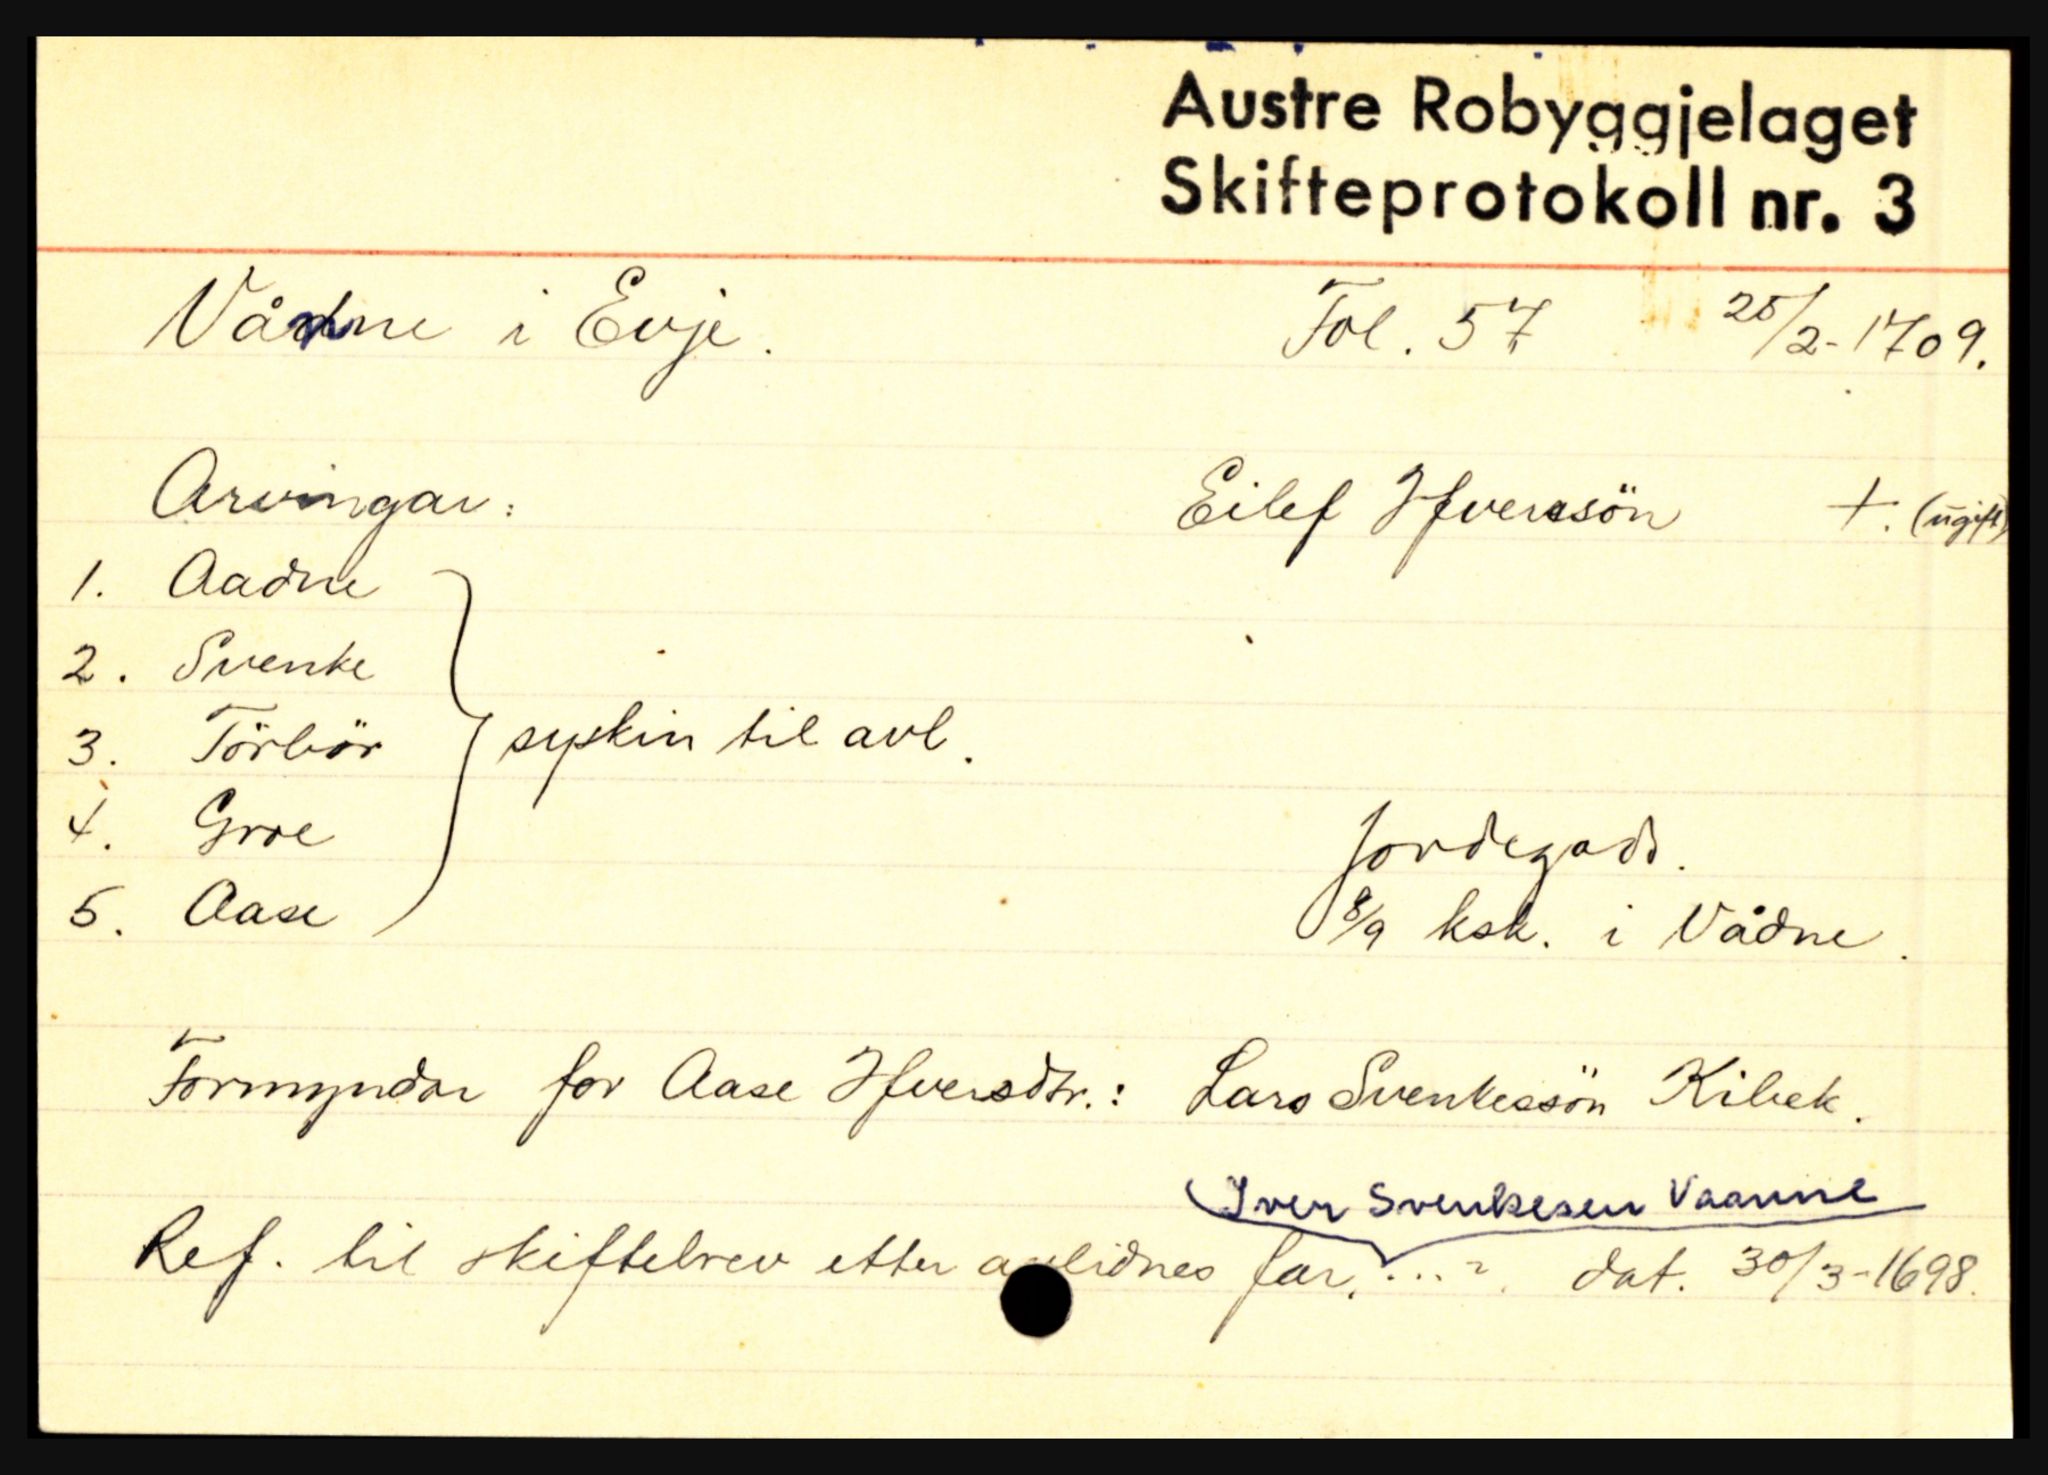 Austre Robyggjelaget
Skifteprotokoll nr. 3
Vånne i Evje. Fol. 57 25/2-1709.
Arvingar: Eilef Ifversön +. (ugift)
1. Aadne
2. Svenke
3. Törbör } syskin til avl.
4. Groe
5. Aase
Jordegods.
8/9 ksk. i Vådne.
Formyndar for Aase Ifversdtr.: Lars Svenkessön Kibek.
Iver Svenkesen Vaanne
Ref. til skiftebrev etter avlidnes far, ...?. dat. 30/3-1698.